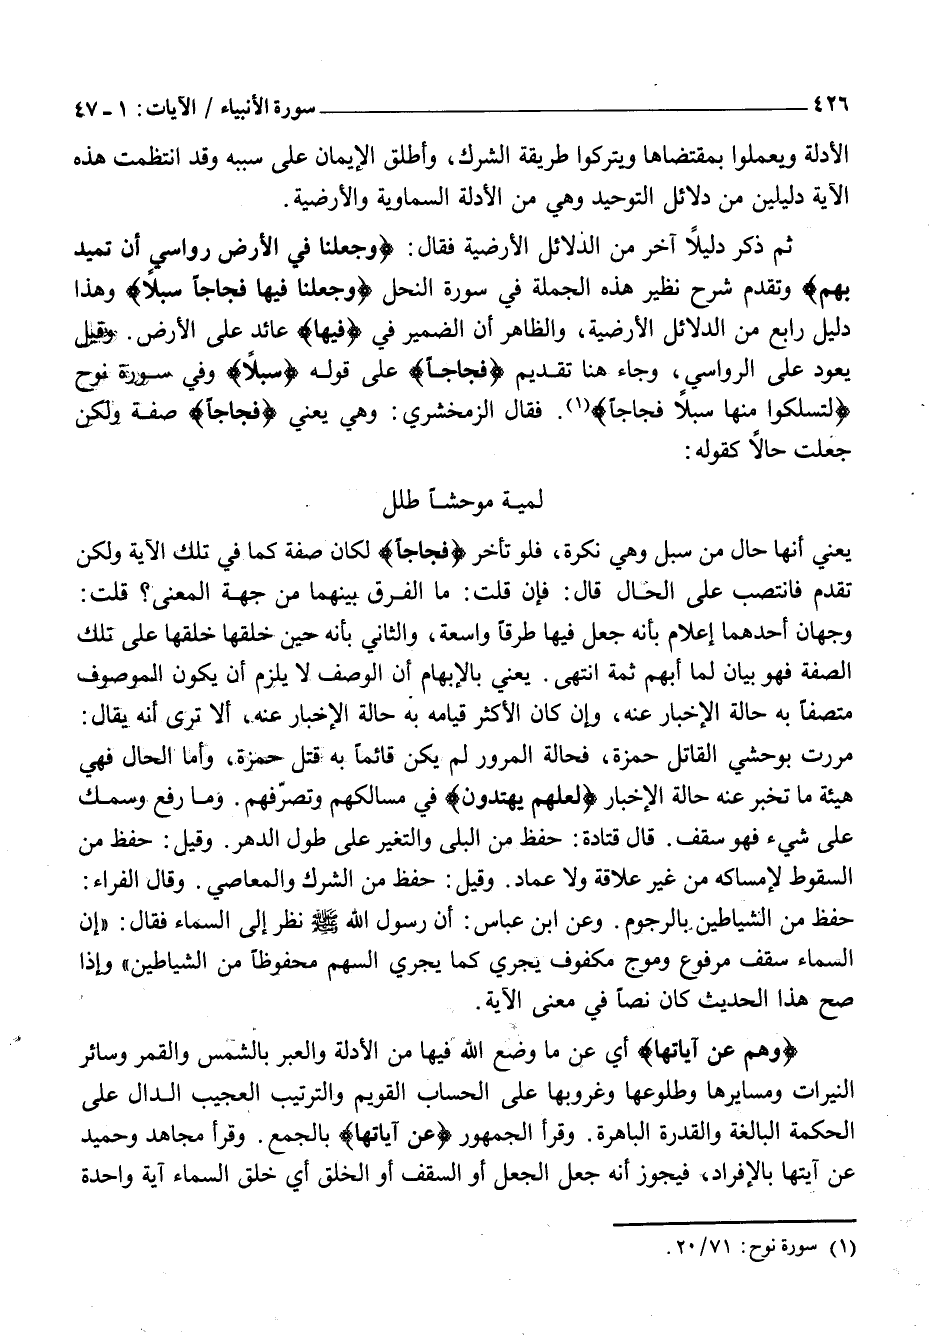 ٤٢٦ ـــــــــــــــــــــــــــــــــــــــــــــــــ سورة الأنبياء / الآيات: ١ ـ ٤٧
الأدلة ويعملوا بمقتضاها ويتركوا طريقة الشرك، وأطلق الإيمان على سببه وقد انتظمت هذه
الآية دليلين من دلائل التوحيد وهي من الأدلة السماوية والأرضية.
ثم ذكر دليلاً آخر من الدلائل الأرضية فقال: ﴿وجعلنا في الأرض رواسي أن تميد
بهم﴾ وتقدم شرح نظير هذه الجملة في سورة النحل ﴿وجعلنا فيها فجاجاً سبلاً﴾ وهذا
دليل رابع من الدلائل الأرضية، والظاهر أن الضمير في ﴿فيها﴾ عائد على الأرض. وقيل
يعود على الرواسي، وجاء هنا تقديم ﴿فجاجاً﴾ على قوله ﴿سبلاً﴾ وفي سورة نوح
﴿لتسلكوا منها سبلاً فجاجاً﴾(١). فقال الزمخشري: وهي يعني ﴿فجاجاً﴾ صفة ولكن
جعلت حالاً كقوله:
لمية موحشاً طلل
يعني أنها حال من سبل وهي نكرة، فلو تأخر ﴿فجاجاً﴾ لكان صفة كما في تلك الآية ولكن
تقدم فانتصب على الحال قال: فإن قلت: ما الفرق بينهما من جهة المعنى؟ قلت:
وجهان أحدهما إعلام بأنه جعل فيها طرقاً واسعة، والثاني بأنه حين خلقها خلقها على تلك
الصفة فهو بيان لما أبهم ثمة انتهى. يعني بالإبهام أن الوصف لا يلزم أن يكون الموصوف
متصفاً به حالة الإخبار عنه، وإن كان الأكثر قيامه به حالة الإخبار عنه، ألا ترى أنه يقال:
مررت بوحشي القاتل حمزة، فحالة المرور لم يكن قائماً به قتل حمزة، وأما الحال فهي
هيئة ما تخبر عنه حالة الإخبار ﴿لعلهم يهتدون﴾ في مسالكهم وتصرّفهم. وما رفع وسمك
على شيء فهو سقف. قال قتادة: حفظ من البلى والتغير على طول الدهر. وقيل: حفظ من
السقوط لإمساكه من غير علاقة ولا عماد. وقيل: حفظ من الشرك والمعاصي. وقال الفراء:
حفظ من الشياطين بالرجوم. وعن ابن عباس: أن رسول الله ﷺ نظر إلى السماء فقال: «إن
السماء سقف مرفوع وموج مكفوف يجري كما يجري السهم محفوظاً من الشياطين» وإذا
صح هذا الحديث كان نصاً في معنى الآية.
﴿وهم عن آياتها﴾ أي عن ما وضع الله فيها من الأدلة والعبر بالشمس والقمر وسائر
النيرات ومسايرها وطلوعها وغروبها على الحساب القويم والترتيب العجيب الدال على
الحكمة البالغة والقدرة الباهرة. وقرأ الجمهور ﴿عن آياتها﴾ بالجمع. وقرأ مجاهد وحميد
عن آيتها بالإفراد، فيجوز أنه جعل الجعل أو السقف أو الخلق أي خلق السماء آية واحدة
(١) سورة نوح: ٢٠/٧١.